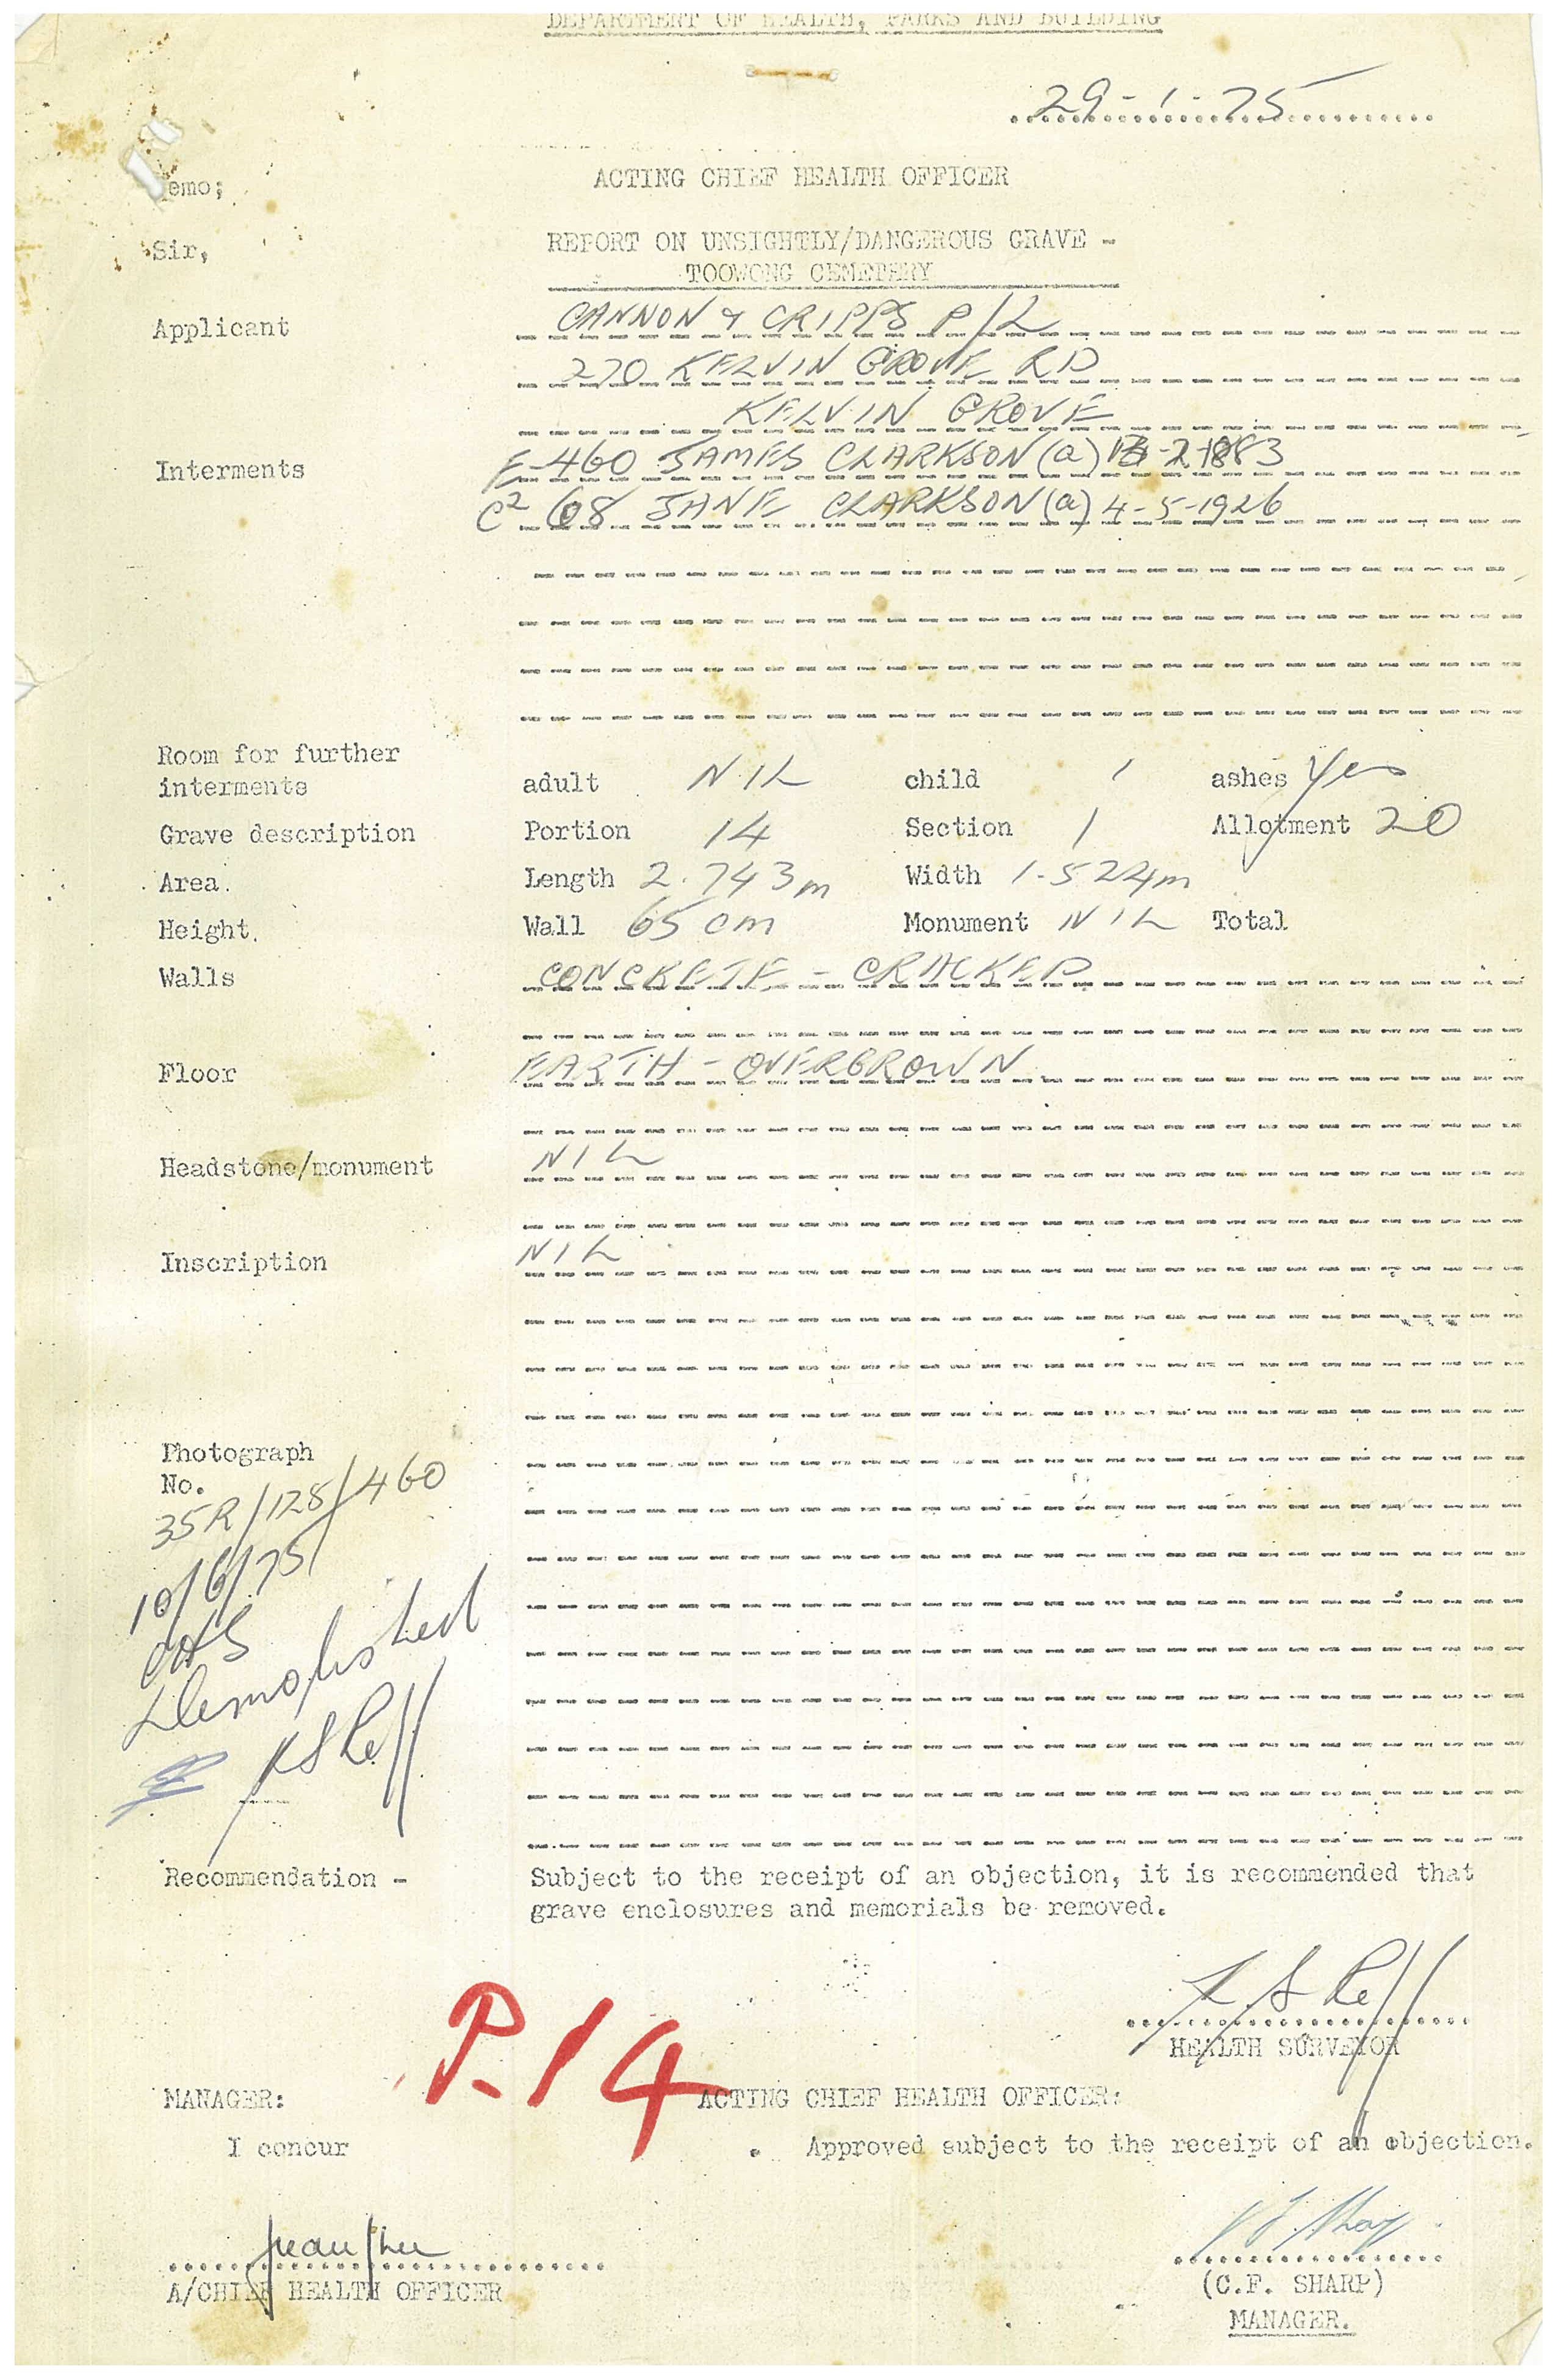 DEPARTMENT OF HEALTH, PARKS AND BUILDING
29-1-75
emo;
ACTING CHIEF HEALTH OFFICER
Sir,
REPORT ON UNSIGHTLY/DANGEROUS GRAVE -
TOOWONG CEMETERY
Applicant CANNON & CRIPPS P/L
270 KELVIN GROVE RD
KELVIN GROVE
Interments E-460 JAMES CLARKSON (a) -2-1883
C2 608 JANE CLARKSON (a) 4-5-1926
Room for further
interments adult NIL child 1 ashes Yes
Grave description Portion 14 Section 1 Allotment 20
Area. Length 2.743m Width 1.524m
Height. Wall 65 cm Monument NIL Total
Walls CONCRETE - CRACKED
Floor EARTH - OVERGROWN
Headstone/monument NIL
Inscription NIL
Photograph
No.
35R/128/460
10/6/75
Demolished
Recommendation - Subject to the receipt of an objection, it is recommended that
grave enclosures and memorials be removed.
HEALTH SURVEYOR
P.14
MANAGER: ACTING CHIEF HEALTH OFFICER:
I concur Approved subject to the receipt of an objection.
A/CHIEF HEALTH OFFICER
(C.F. SHARP)
MANAGER.